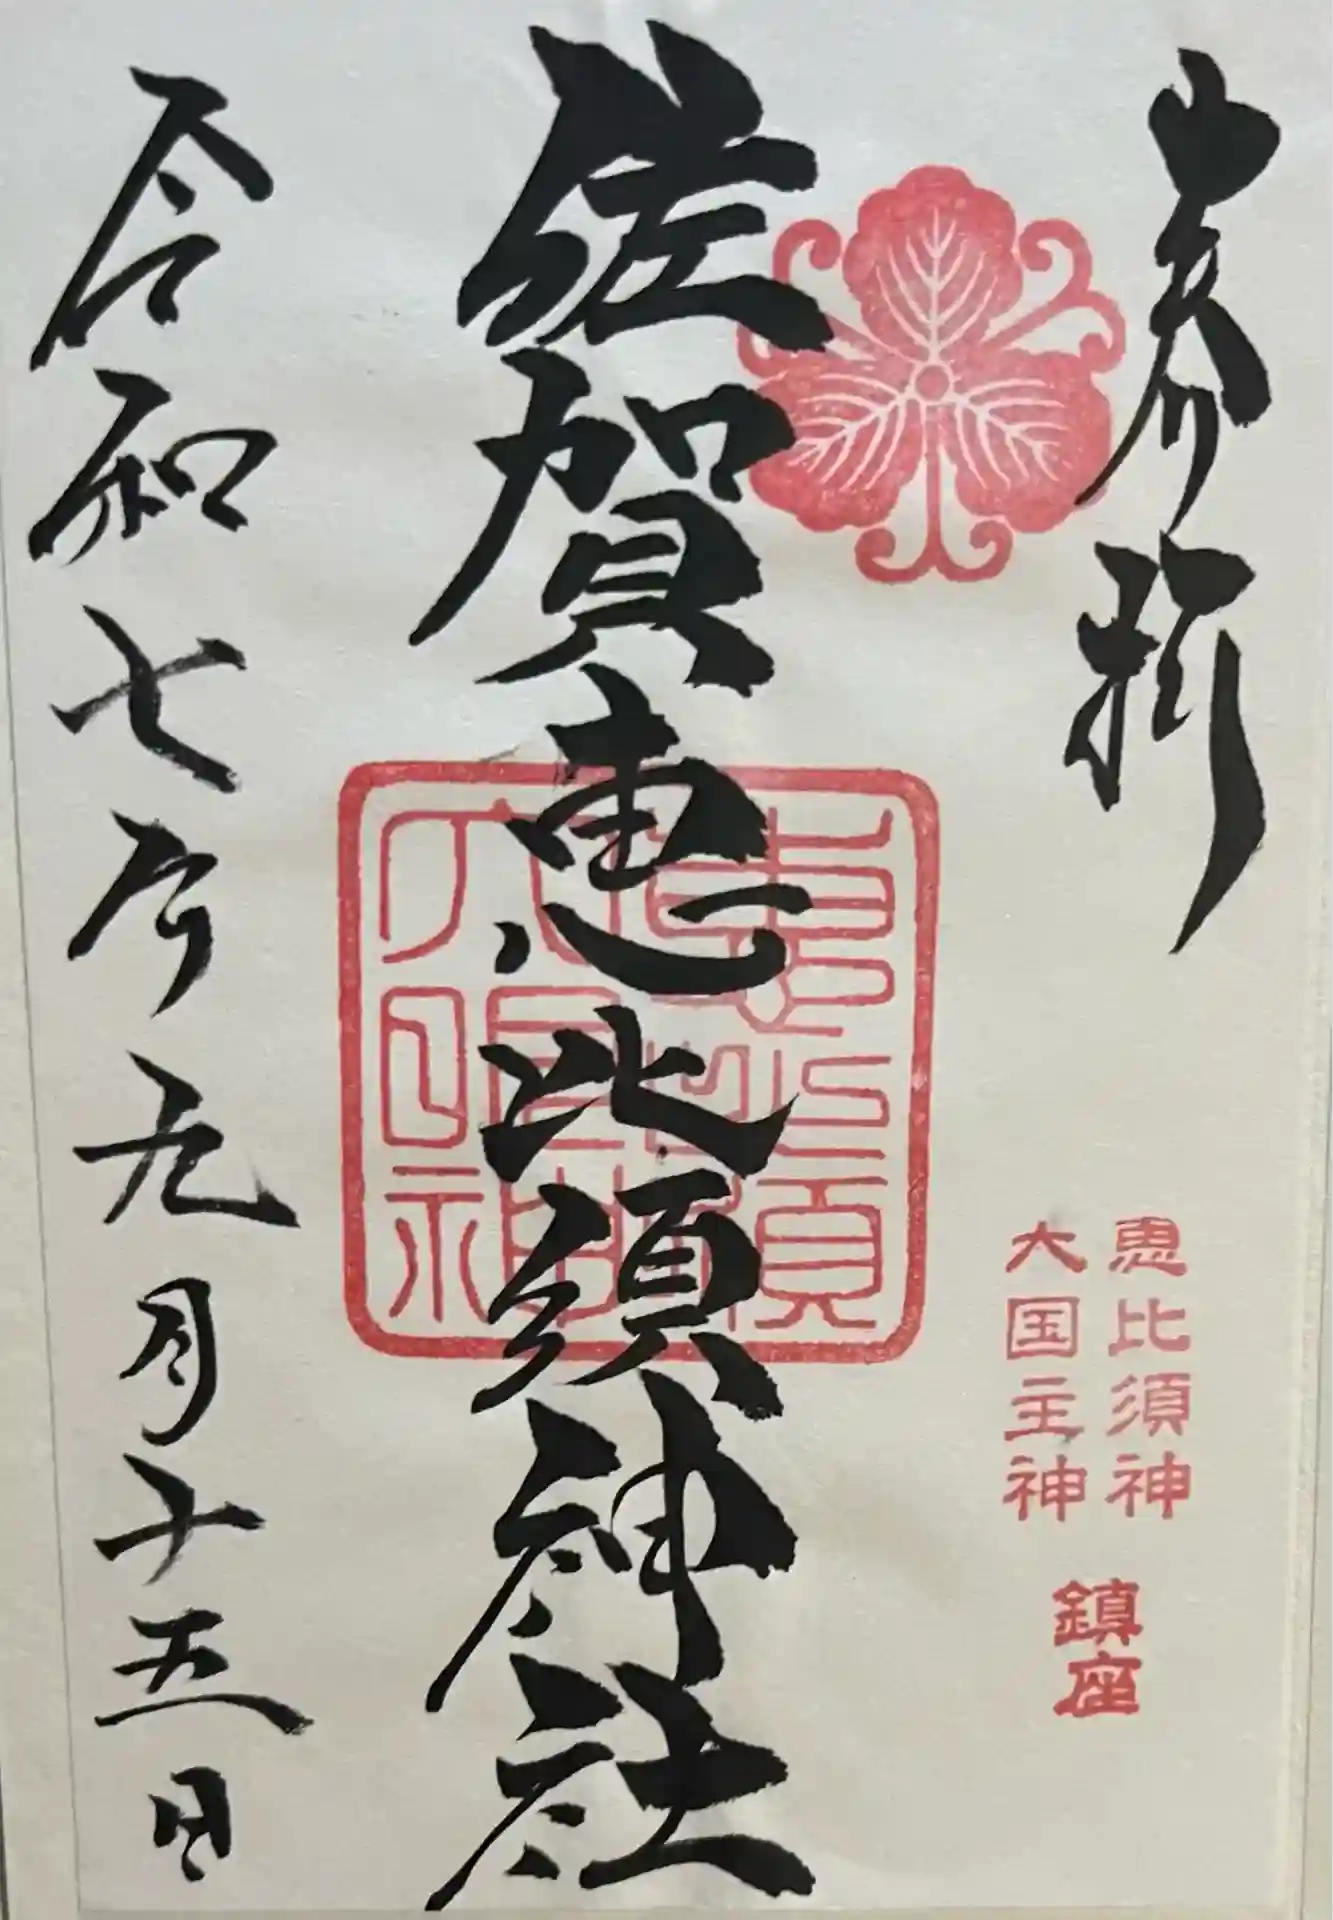 奉拝
恵比須神
大国主神
鎮座
佐賀恵比須神社
令和七年九月十五日